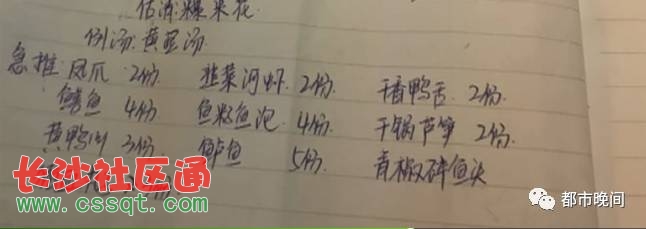 估清:爆米花
例汤:黄豆汤
急推:凤爪 2份 韭菜河虾 2份 干香鸭舌 2份
鳝鱼 4份 鱼籽鱼泡 4份 干锅芦笋 2份
黄鸭叫 3份 鲈鱼 5份 青椒碎鱼头
长沙社区通
www.cssqt.com
都市晚间